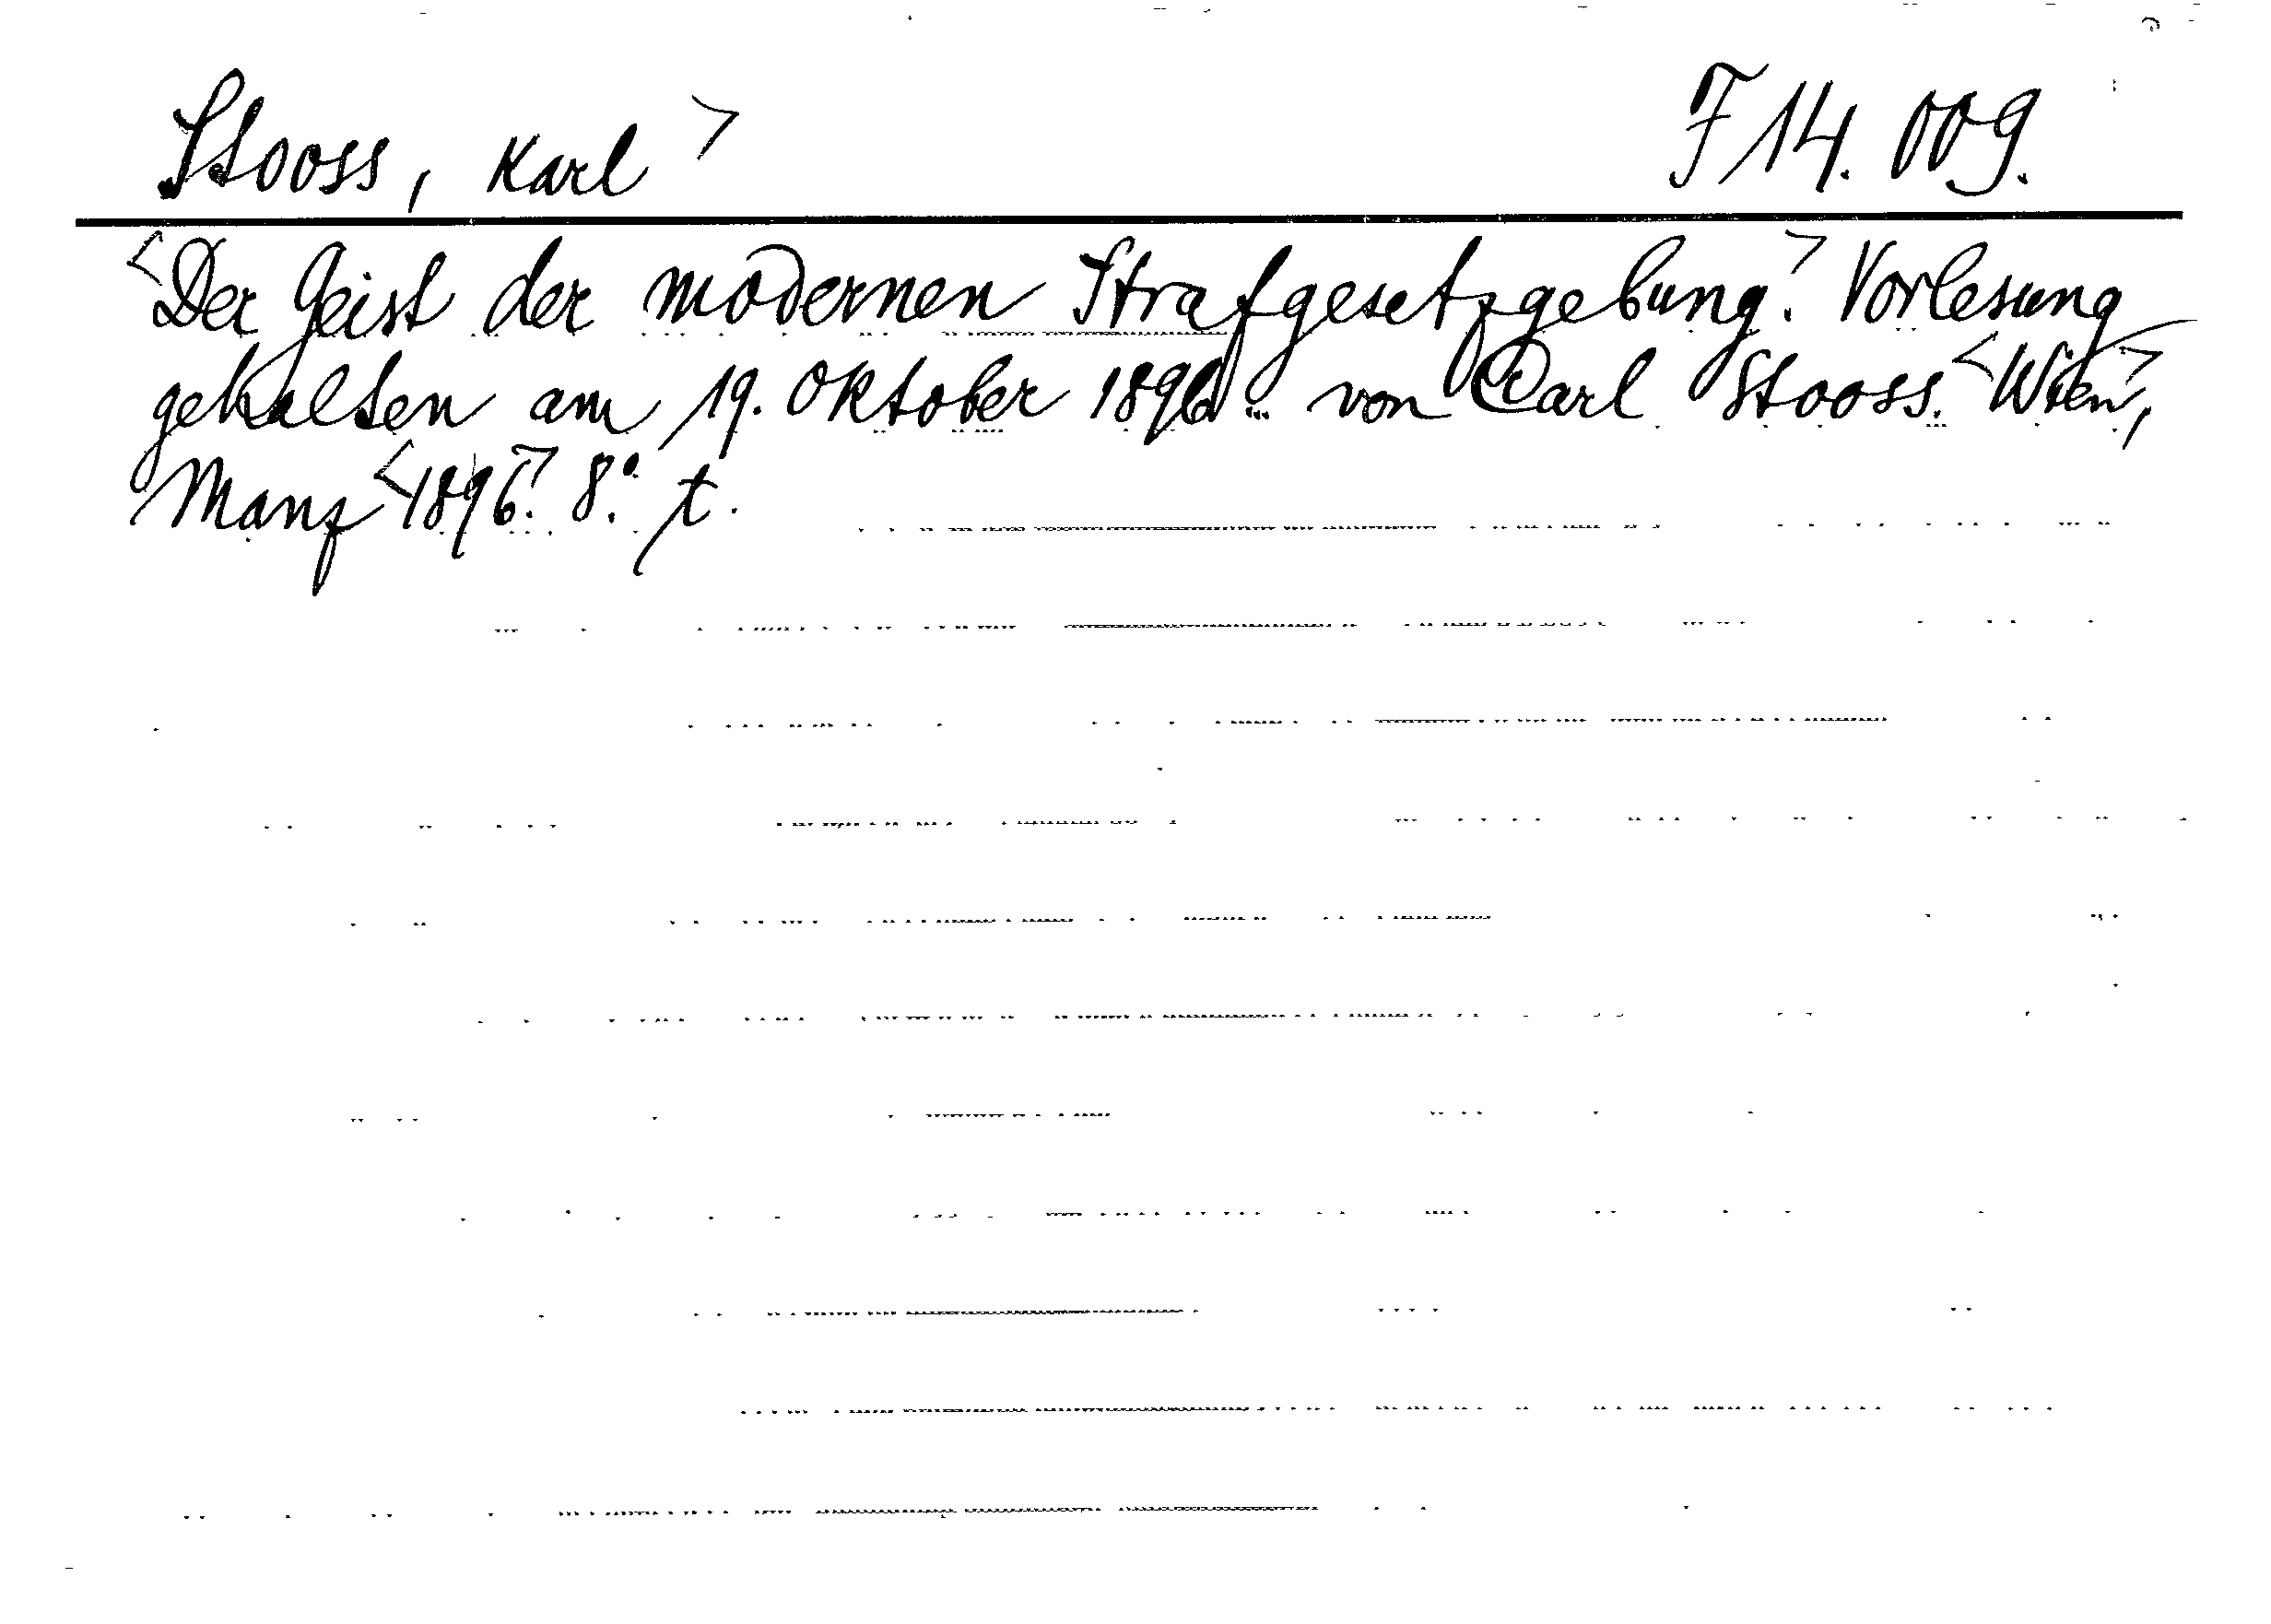 Stooss, Karl> F 14.009.
<Der Geist der modernen Strafgesetzgebung.> Vorlesung
gehalten am 19. Oktober 1896... von Carl Stooss. <Wien>,
Manz <1896.> 8.° t.